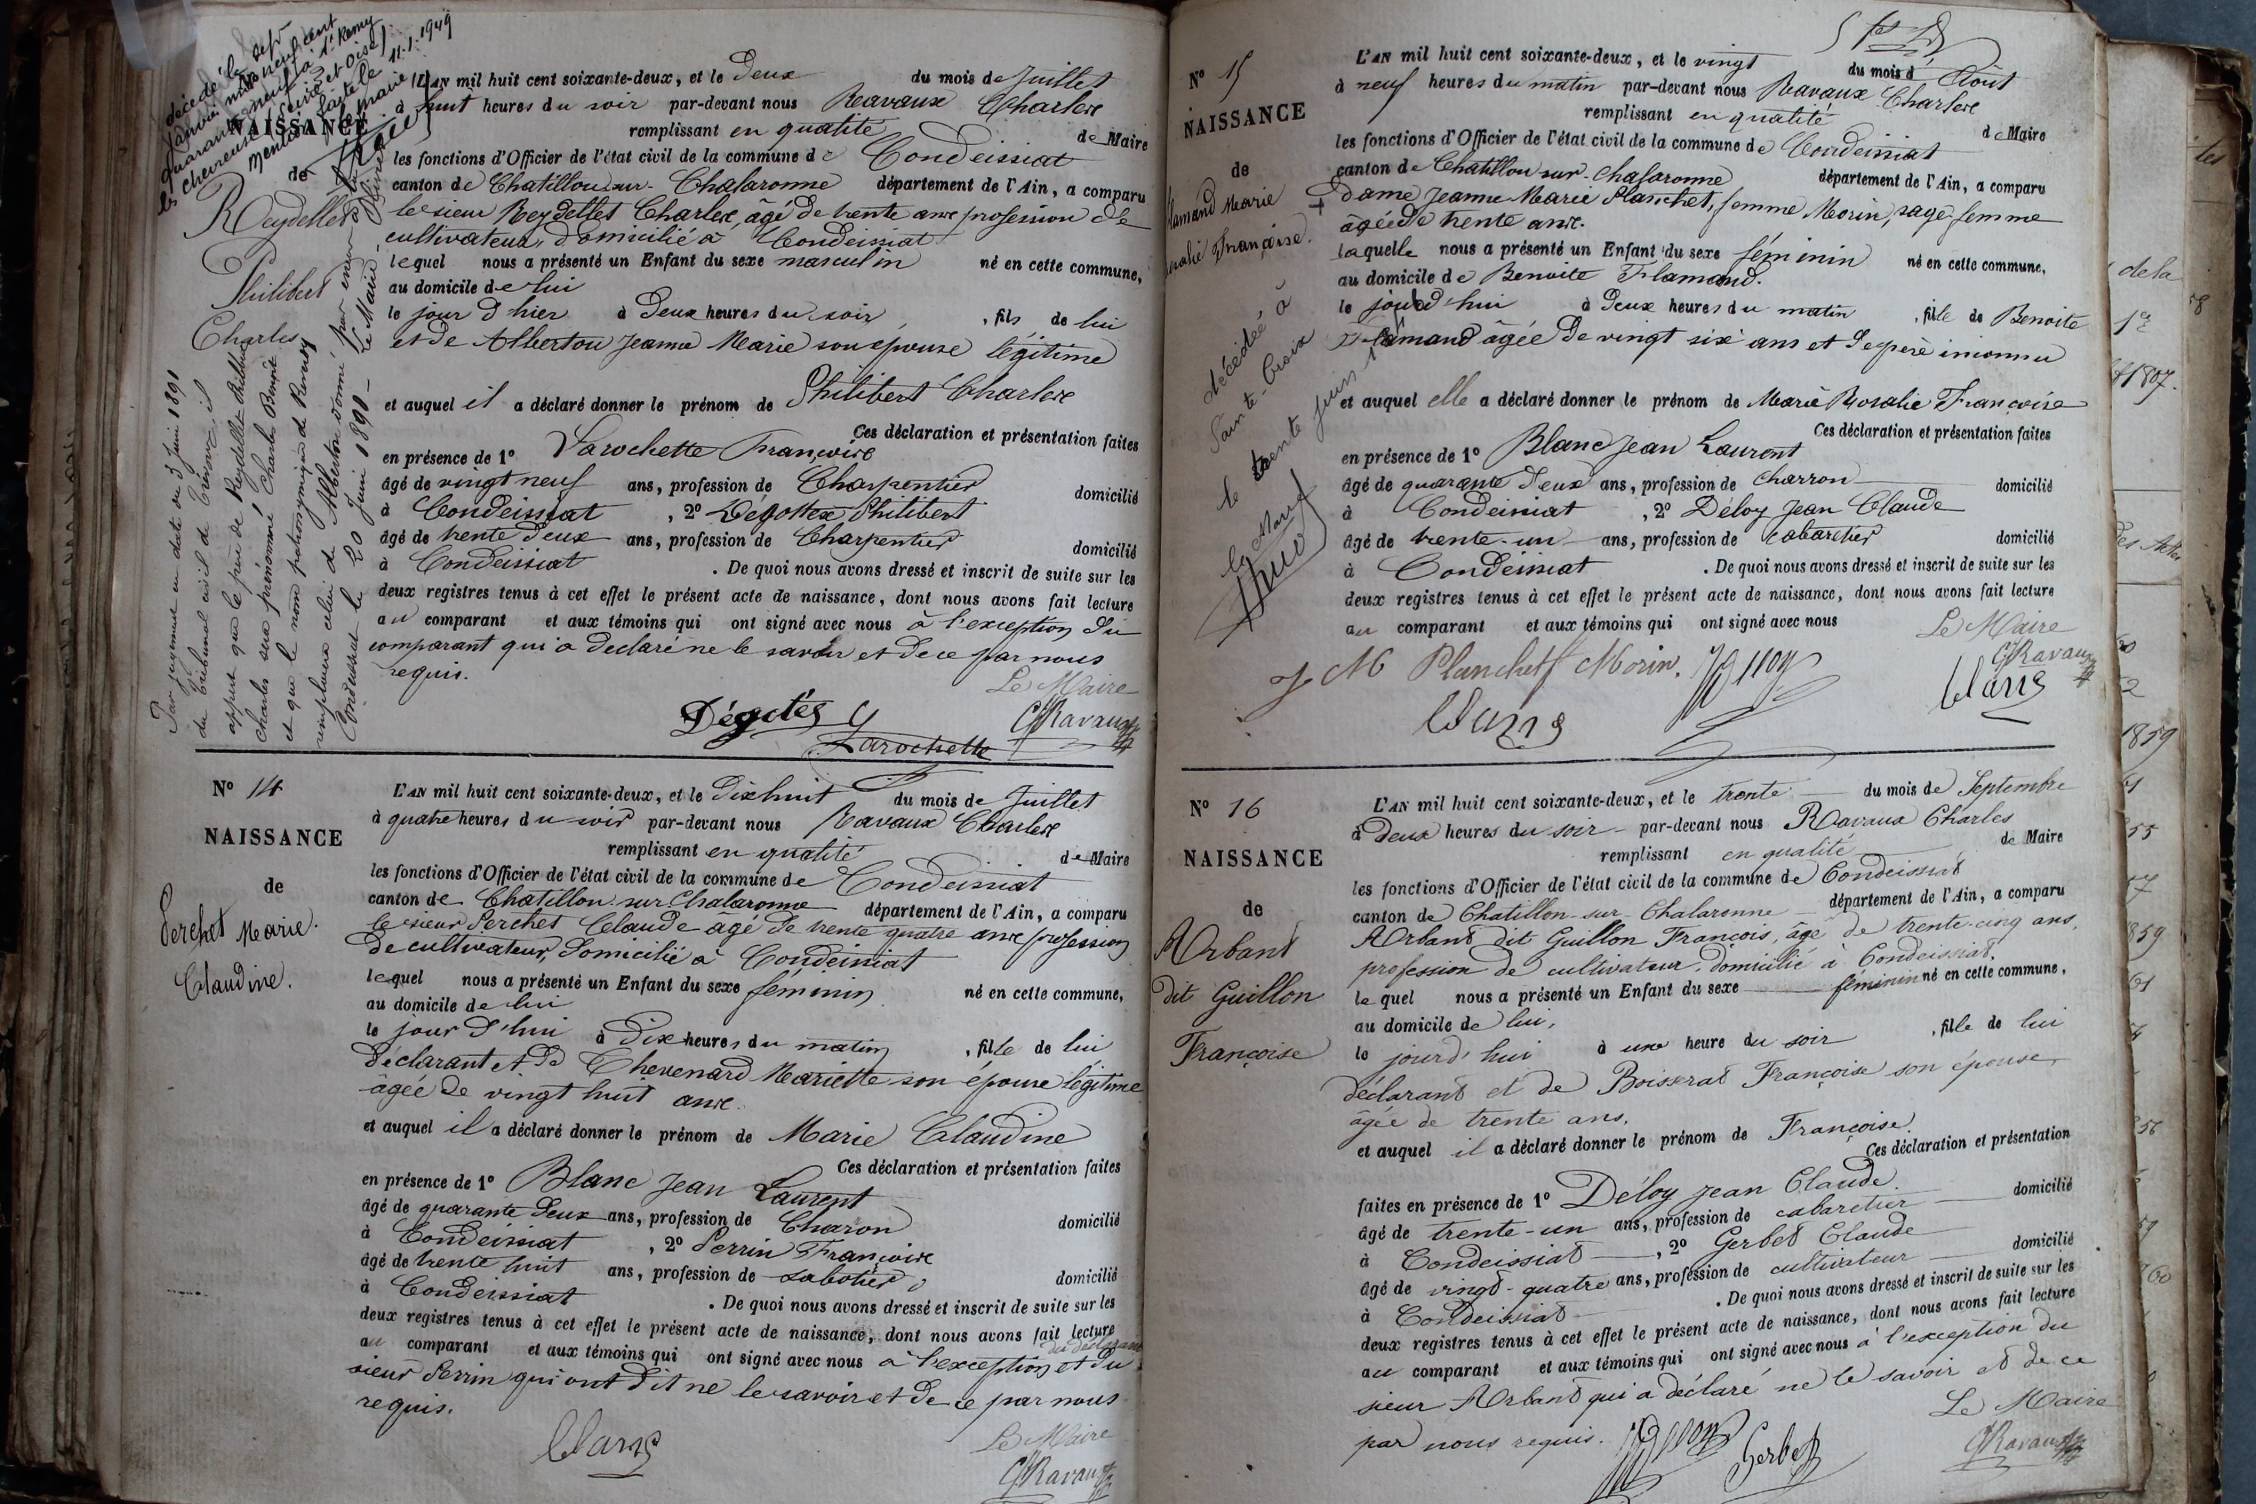 décédé le sept
janvier mil neuf cent
quarante neuf à St Remy
les chevreuse (Seine et Oise)
Mention faite le 11.1.1949
le maire
NAISSANCE
de
Reydellet
Philibert
Charles
Par jugement en date du 5 juin 1891
du Tribunal civil de Trévoux, il
appert que le père de Reydellet Philibert
Charles sera prénommé Charles Benoît
et que le nom patronymique de
remplacera celui de Alberton donné par erreur
Condeissiat le 20 juin 1891 – Le Maire
L'AN mil huit cent soixante-deux, et le Deux du mois de Juillet
à huit heures du soir par-devant nous Ravaux Charles
remplissant en qualité de Maire
les fonctions d'Officier de l'état civil de la commune de Condeissiat
canton de Chatillon-sur-Chalaronne département de l'Ain, a comparu
le sieur Reydellet Charles, âgé de trente ans profession de
cultivateur, domicilié à Condeissiat
lequel nous a présenté un Enfant du sexe masculin né en cette commune,
au domicile de lui
le jour d'hier à Deux heures du soir, fils de lui
et de Alberton Jeanne Marie son épouse légitime
et auquel il a déclaré donner le prénom de Philibert Charles
Ces déclaration et présentation faites
en présence de 1° Larochette François
âgé de vingt neuf ans, profession de Charpentier domicilié
à Condeissiat, 2° Dégottex Philibert
âgé de trente deux ans, profession de Charpentier domicilié
à Condeissiat. De quoi nous avons dressé et inscrit de suite sur les
deux registres tenus à cet effet le présent acte de naissance, dont nous avons fait lecture
au comparant et aux témoins qui ont signé avec nous à l'exception du
comparant qui a déclaré ne le savoir et de ce par nous
requis.
Le Maire
Larochette
C Ravaux
N° 14
NAISSANCE
de
Perchet Marie
Claudine.
L'AN mil huit cent soixante-deux, et le Dix huit du mois de Juillet
à quatre heures du soir par-devant nous Ravaux Charles
remplissant en qualité de Maire
les fonctions d'Officier de l'état civil de la commune de Condeissiat
canton de Chatillon sur Chalaronne département de l'Ain, a comparu
le sieur Perchet Claude âgé de trente quatre ans profession
de cultivateur, Domicilié à Condeissiat
lequel nous a présenté un Enfant du sexe féminin né en cette commune,
au domicile de lui
le jour d'hui à Dix heures du matin, fille de lui
déclarant et de Chevenard Mariette son épouse légitime
âgée de vingt huit ans.
et auquel il a déclaré donner le prénom de Marie Claudine
Ces déclaration et présentation faites
en présence de 1° Blanc Jean Laurent
âgé de quarante deux ans, profession de Charon domicilié
à Condeissiat, 2° Perrin François
âgé de trente huit ans, profession de sabotier domicilié
à Condeissiat. De quoi nous avons dressé et inscrit de suite sur les
deux registres tenus à cet effet le présent acte de naissance, dont nous avons fait lecture
au comparant et aux témoins qui ont signé avec nous à l'exception du déclarant et du
sieur Perrin qui ont dit ne le savoir et de ce par nous
requis.
Le Maire
C Ravaux
N° 15
NAISSANCE
de
Flamand Marie
Rosalie Françoise.
décédée à
Sainte-Croix
le trente juin
Le Maire
L'AN mil huit cent soixante-deux, et le vingt du mois d'Août
à neuf heures du matin par-devant nous Ravaux Charles
remplissant en qualité de Maire
les fonctions d'Officier de l'état civil de la commune de Condeissiat
canton de Chatillon-sur-Chalaronne département de l'Ain, a comparu
Dame Jeanne Marie Planchet, femme Morin, sage femme
âgée de trente ans.
laquelle nous a présenté un Enfant du sexe féminin né en cette commune,
au domicile de Benoite Flamand.
le jourd'hui à Deux heures du matin, fille de Benoite
Flamand âgée de vingt six ans et de père inconnu
et auquel elle a déclaré donner le prénom de Marie Rosalie Françoise
Ces déclaration et présentation faites
en présence de 1° Blanc Jean Laurent
âgé de quarante deux ans, profession de charron domicilié
à Condeissiat, 2° Déloy Jean Claude
âgé de trente-un ans, profession de cabaretier domicilié
à Condeissiat. De quoi nous avons dressé et inscrit de suite sur les
deux registres tenus à cet effet le présent acte de naissance, dont nous avons fait lecture
au comparant et aux témoins qui ont signé avec nous
Le Maire
C Ravaux
J M Planchet f Morin.
N° 16
NAISSANCE
de
Orband
dit Guillon
Françoise
L'AN mil huit cent soixante-deux, et le trente du mois de Septembre
à deux heures du soir par-devant nous Ravaux Charles
remplissant en qualité de Maire
les fonctions d'Officier de l'état civil de la commune de Condeissiat
canton de Chatillon-sur-Chalaronne département de l'Ain, a comparu
Orband dit Guillon François, âgé de trente-cinq ans,
profession de cultivateur, domicilié à Condeissiat.
lequel nous a présenté un Enfant du sexe féminin né en cette commune,
au domicile de lui,
le jourd'hui à une heure du soir, fille de lui
déclarant et de Boisserat Françoise son épouse
âgée de trente ans.
et auquel il a déclaré donner le prénom de Françoise.
Ces déclaration et présentation
faites en présence de 1° Déloy Jean Claude
âgé de trente-un ans, profession de cabaretier domicilié
à Condeissiat, 2° Gerbet Claude
âgé de vingt-quatre ans, profession de cultivateur domicilié
à Condeissiat. De quoi nous avons dressé et inscrit de suite sur les
deux registres tenus à cet effet le présent acte de naissance, dont nous avons fait lecture
au comparant et aux témoins qui ont signé avec nous à l'exception du
sieur Orband qui a déclaré ne le savoir et de ce
par nous requis.
Le Maire
Gerbet
C Ravaux
de la
1807.
1859